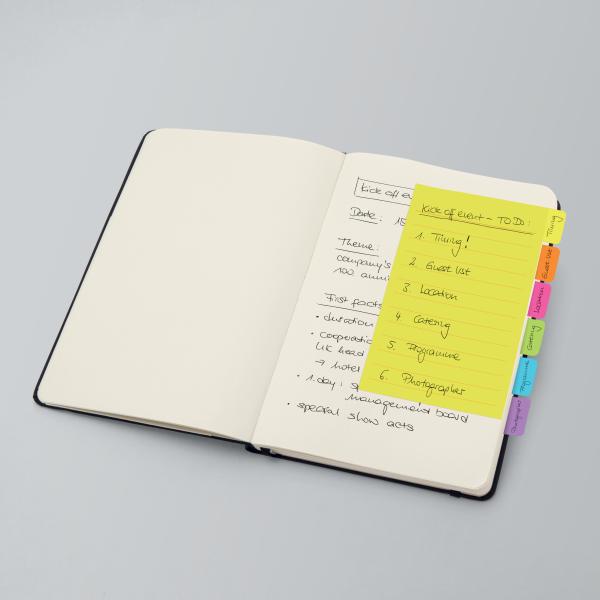 Kick off ev
Date: 15
Theme:
company's
100 anni
First facts
• duration
• cooperatio
UK head
→ hotel
• 1. day: sp
management board
• special show acts
Kick off event – TO DO:
1. Timing!
2. Guest list
3. Location
4. Catering
5. Programme
6. Photographer
Timing
Guest list
Location
Catering
Programme
Photographer